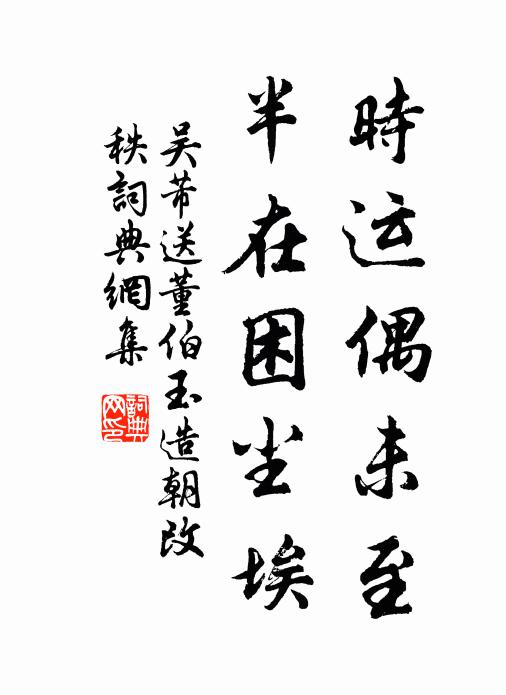 時运偶未至
半在困尘埃
吴芾送董伯玉造朝改
秩詞典網集
詞典网印